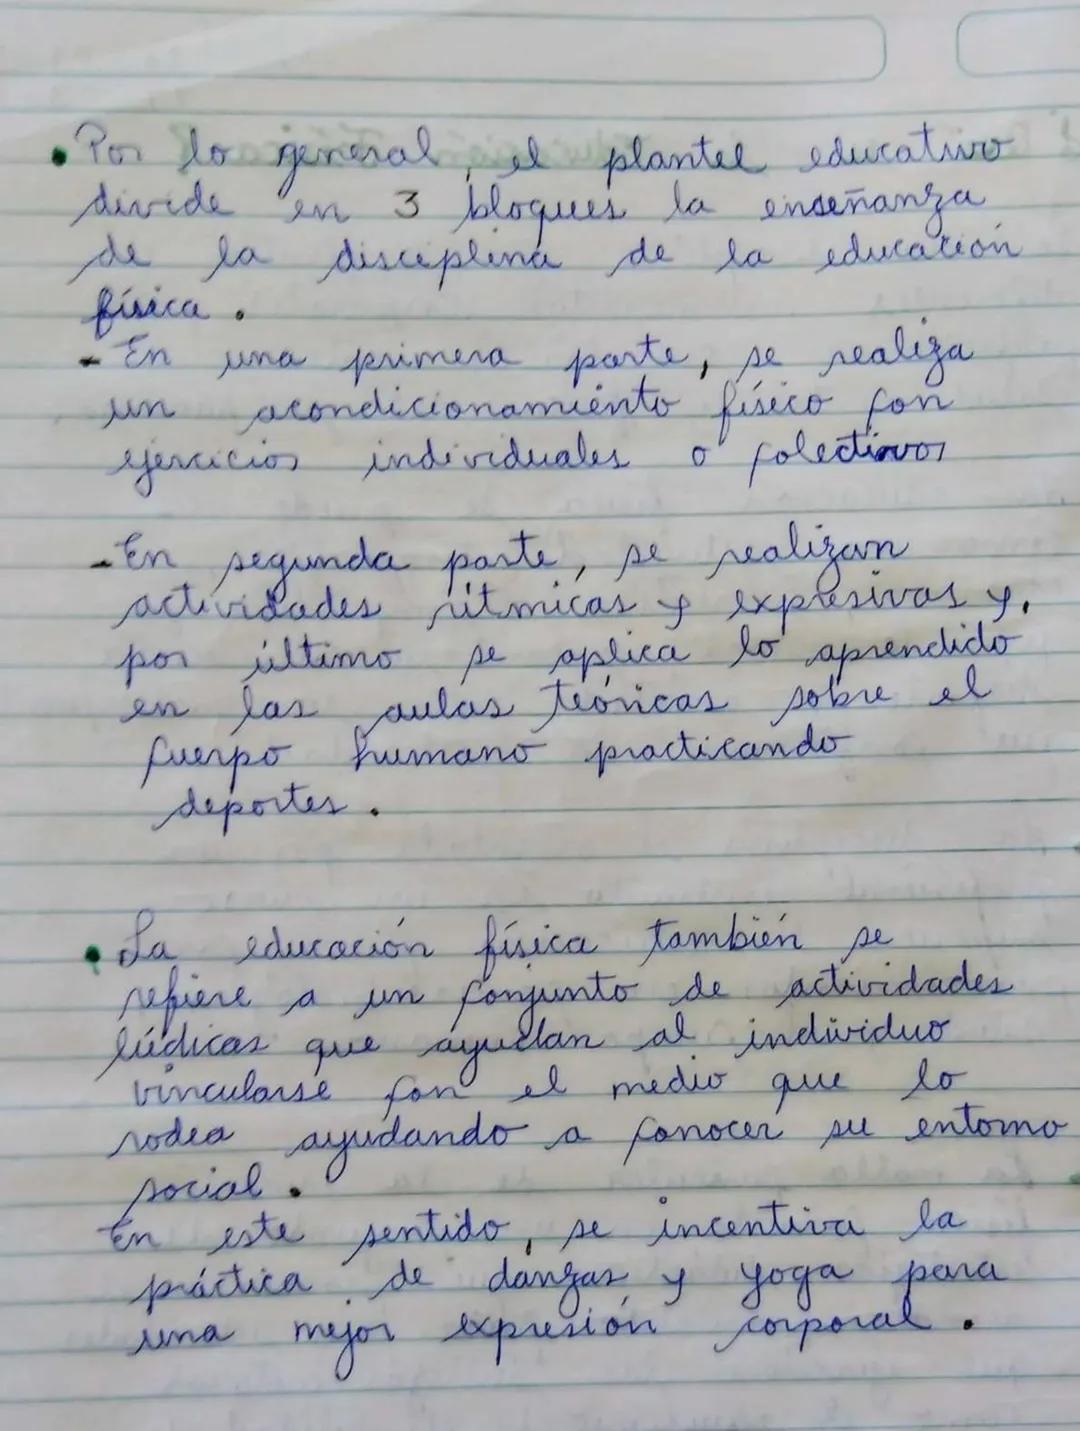 • Por lo general, el plantel educativo
divide en 3 bloques la enseñanza
de la disciplina de la educación
física.
- En una primera parte, se realiza
un acondicionamiento físico con
ejercicios individuales o colectivos
- En segunda parte, se realizan
actividades rítmicas y expresivas y,
por último se aplica lo aprendido
en las aulas teóricas sobre el
cuerpo humano practicando
deportes.
• La educación física también se
refiere a un conjunto de actividades
lúdicas que ayudan al individuo
vincularse con el medio que lo
rodea ayudando a conocer su entorno
social.
En este sentido, se incentiva la
práctica de danzas y yoga para
una mejor expresión corporal.